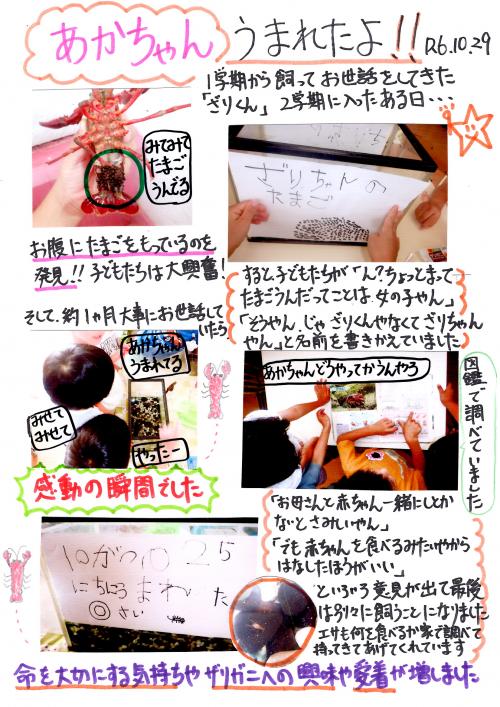 あかちゃん うまれたよ!! R6.10.29
1学期から飼ってお世話をしてきた
「ざりくん」2学期に入ったある日・・・
みてみて
たまご
うんでる
ざりちゃんの
たまご
お腹にたまごをもっているのを
発見!!子どもたちは大興奮!
すると子どもたちが「ん?ちょっとまって
たまごうんだってことは女の子やん」
「そうやん。じゃざりくんやなくてざりちゃん
やん」と名前を書きかえていました
そして、約1ヵ月大事にお世話して
いたら
あかちゃん
うまれてる
みせて
みせて
やったー
あかちゃんどうやってかうんやろ
図鑑で調べていました
感動の瞬間でした
「お母さんと赤ちゃん一緒にしとか
ないとさみしいやん」
「でも赤ちゃんを食べるみたいやから
はなしたほうがいい」
といろいろ意見が出て最後
は別々に飼うことになりました
エサも何を食べるか家で調べて
持ってきてあげてくれています
10がつ 25
にちにうまれた
さい
命を大切にする気持ちやザリガニへの興味や愛着が増しました